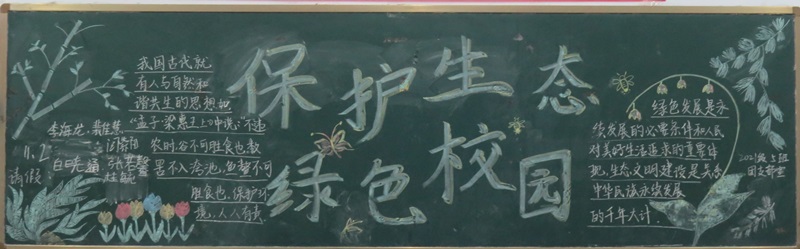 保护生态
绿色校园
我国古代就
有人与自然和
谐共生的思想,如
"孟子·梁惠王上"中说:"不违
农时,谷不可胜食也;数
罟不入洿池,鱼鳖不可
胜食也,保护环
境,人人有责
11.2
请假:
绿色发展是永
续发展的必要条件和人民
对美好生活追求的重要体
现,生态文明建设是关乎
中华民族永续发展
的千年大计.
团支部宣